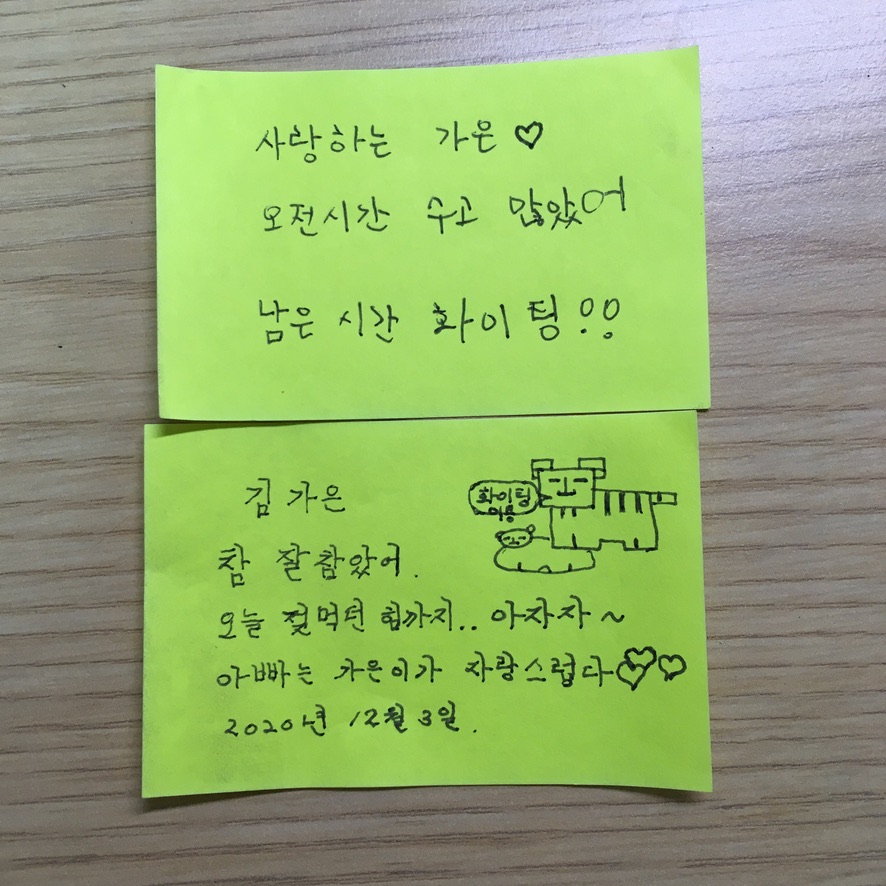 사랑하는 가은♡
오전시간 수고 많았어
남은 시간 화이팅!!
김가은
화이팅
이용
참 잘참았어.
오늘 젖먹던 힘까지.. 아자자~
아빠는 가은이가 자랑스럽다♡♡♡
2020년 12월 3일.